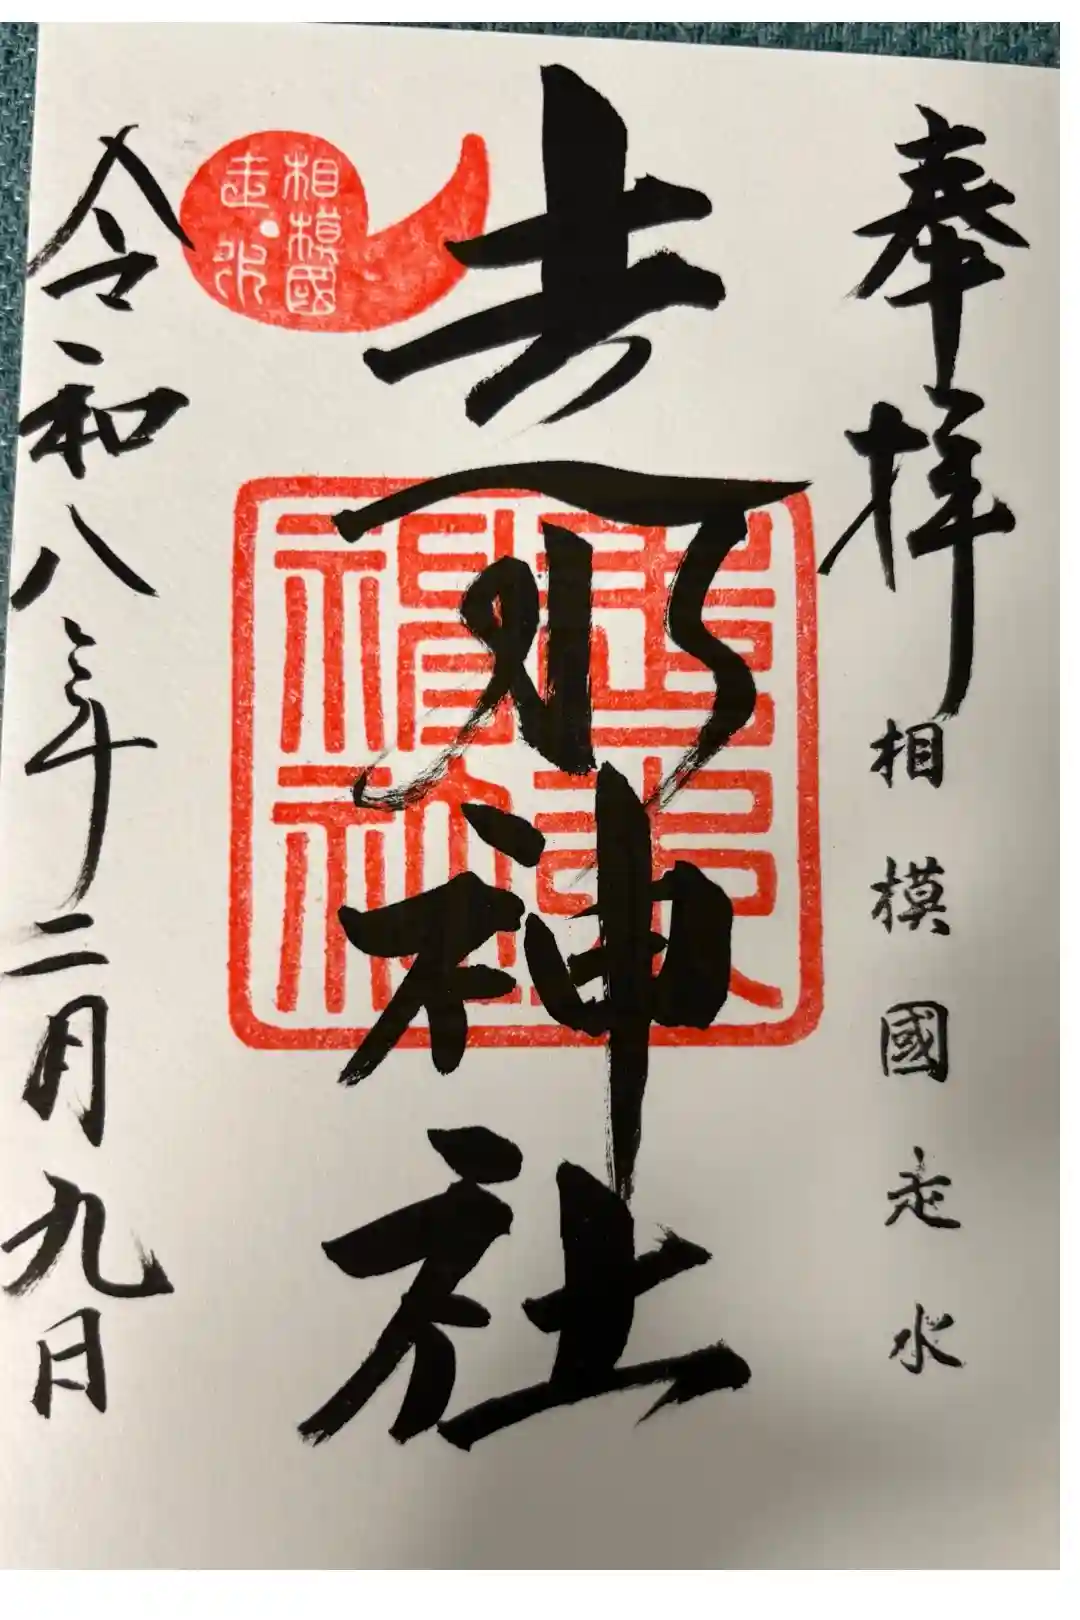 奉拝
相模國走水
走水神社
相模國
走水
走水
神社
令和八年二月九日